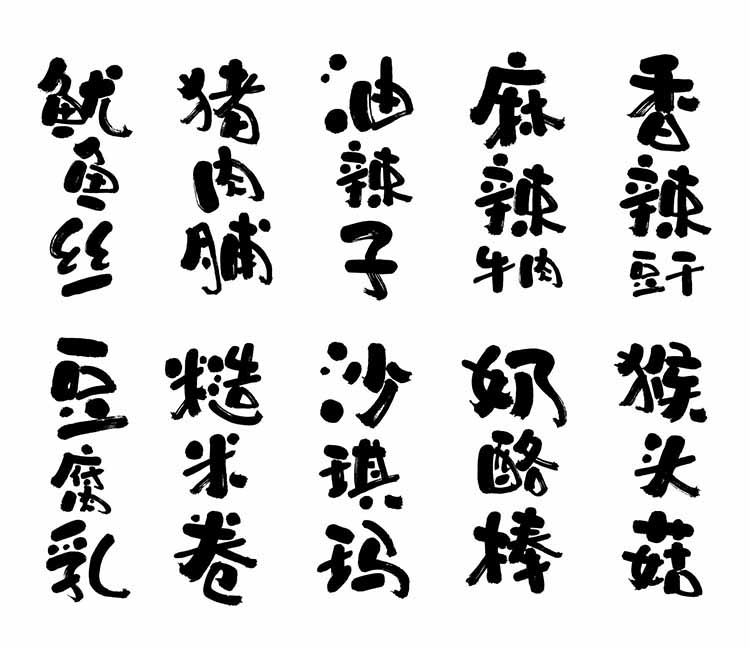 鱿鱼丝
猪肉脯
油辣子
麻辣牛肉
香辣豆干
豆腐乳
糙米卷
沙琪玛
奶酪棒
猴头菇